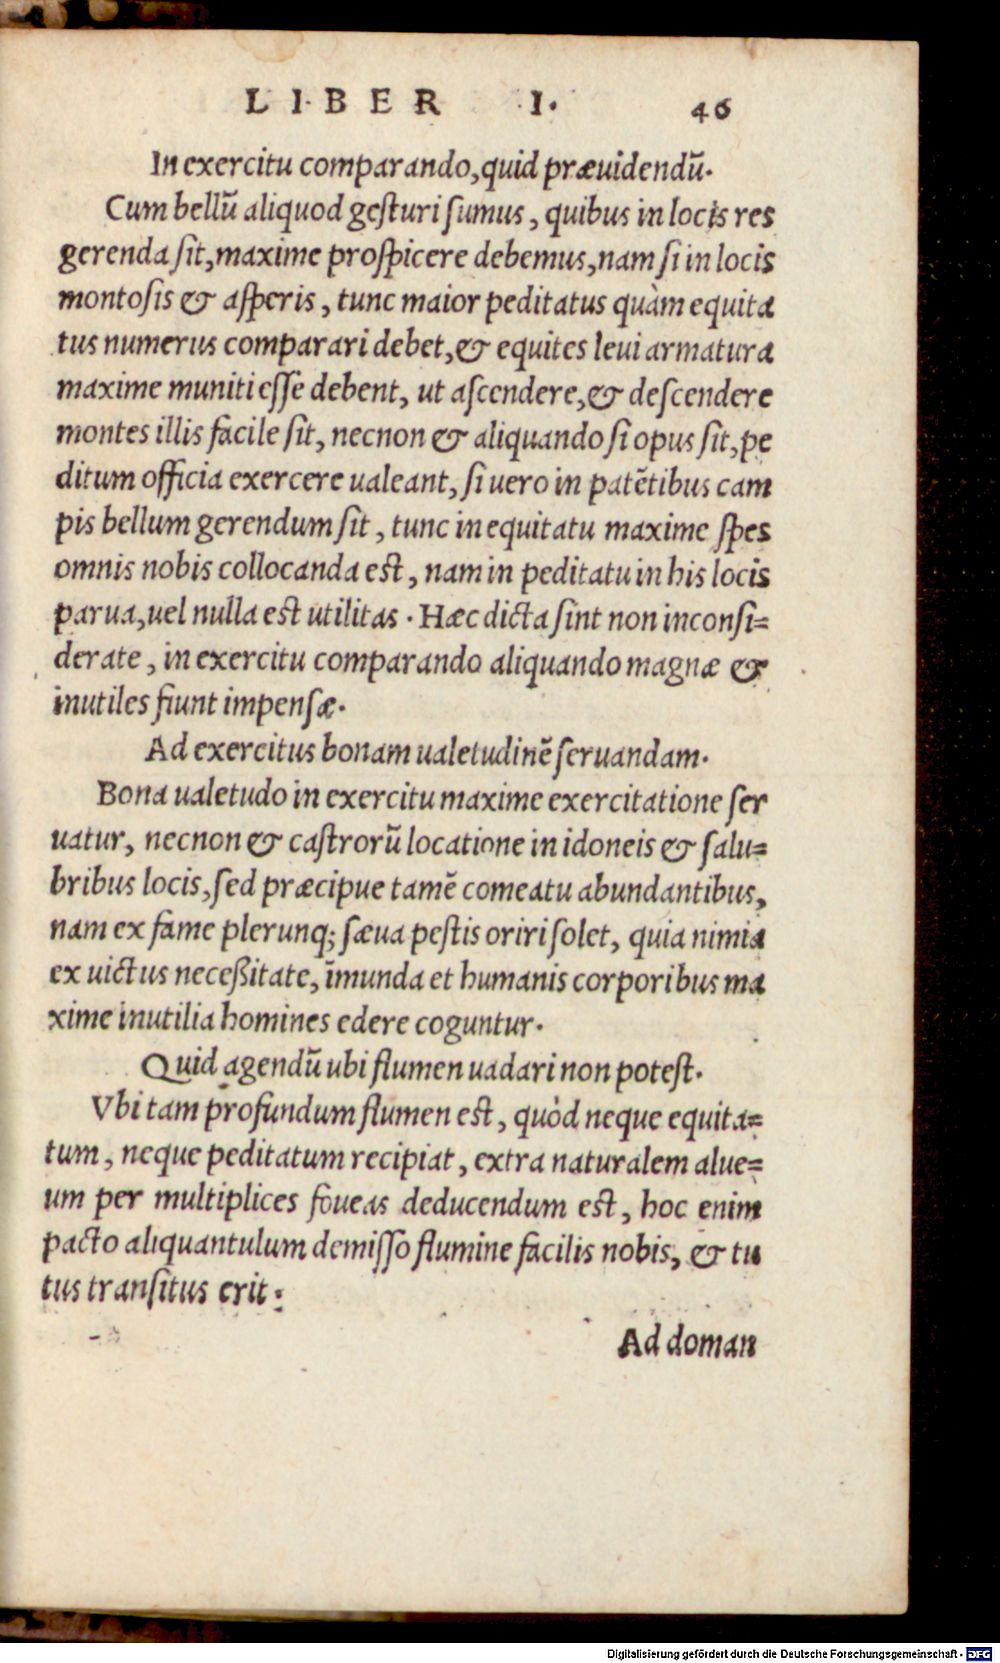 LIBER I. 46
In exercitu comparando, quid præuidendū.
Cum bellū aliquod gesturi sumus, quibus in locis res
gerenda sit, maxime prospicere debemus, nam si in locis
montosis & asperis, tunc maior peditatus quàm equita
tus numerus comparari debet, & equites leui armatura
maxime muniti esse debent, ut ascendere, & descendere
montes illis facile sit, necnon & aliquando si opus sit, pe
ditum officia exercere ualeant, si uero in patētibus cam
pis bellum gerendum sit, tunc in equitatu maxime spes
omnis nobis collocanda est, nam in peditatu in his locis
parua, uel nulla est utilitas. Hæc dicta sint non inconsi=
derate, in exercitu comparando aliquando magnæ &
inutiles fiunt impensæ.
Ad exercitus bonam ualetudinē seruandam.
Bona ualetudo in exercitu maxime exercitatione ser
uatur, necnon & castrorū locatione in idoneis & salu=
bribus locis, sed præcipue tamē comeatu abundantibus,
nam ex fame plerunq; sæua pestis oriri solet, quia nimia
ex uictus neceßitate, īmunda et humanis corporibus ma
xime inutilia homines edere coguntur.
Quid agendū ubi flumen uadari non potest.
Vbi tam profundum flumen est, quòd neque equita=
tum, neque peditatum recipiat, extra naturalem alue=
um per multiplices foueas deducendum est, hoc enim
pacto aliquantulum demisso flumine facilis nobis, & tu
tus transitus erit:
Ad doman
Digitalisierung gefördert durch die Deutsche Forschungsgemeinschaft - DFG